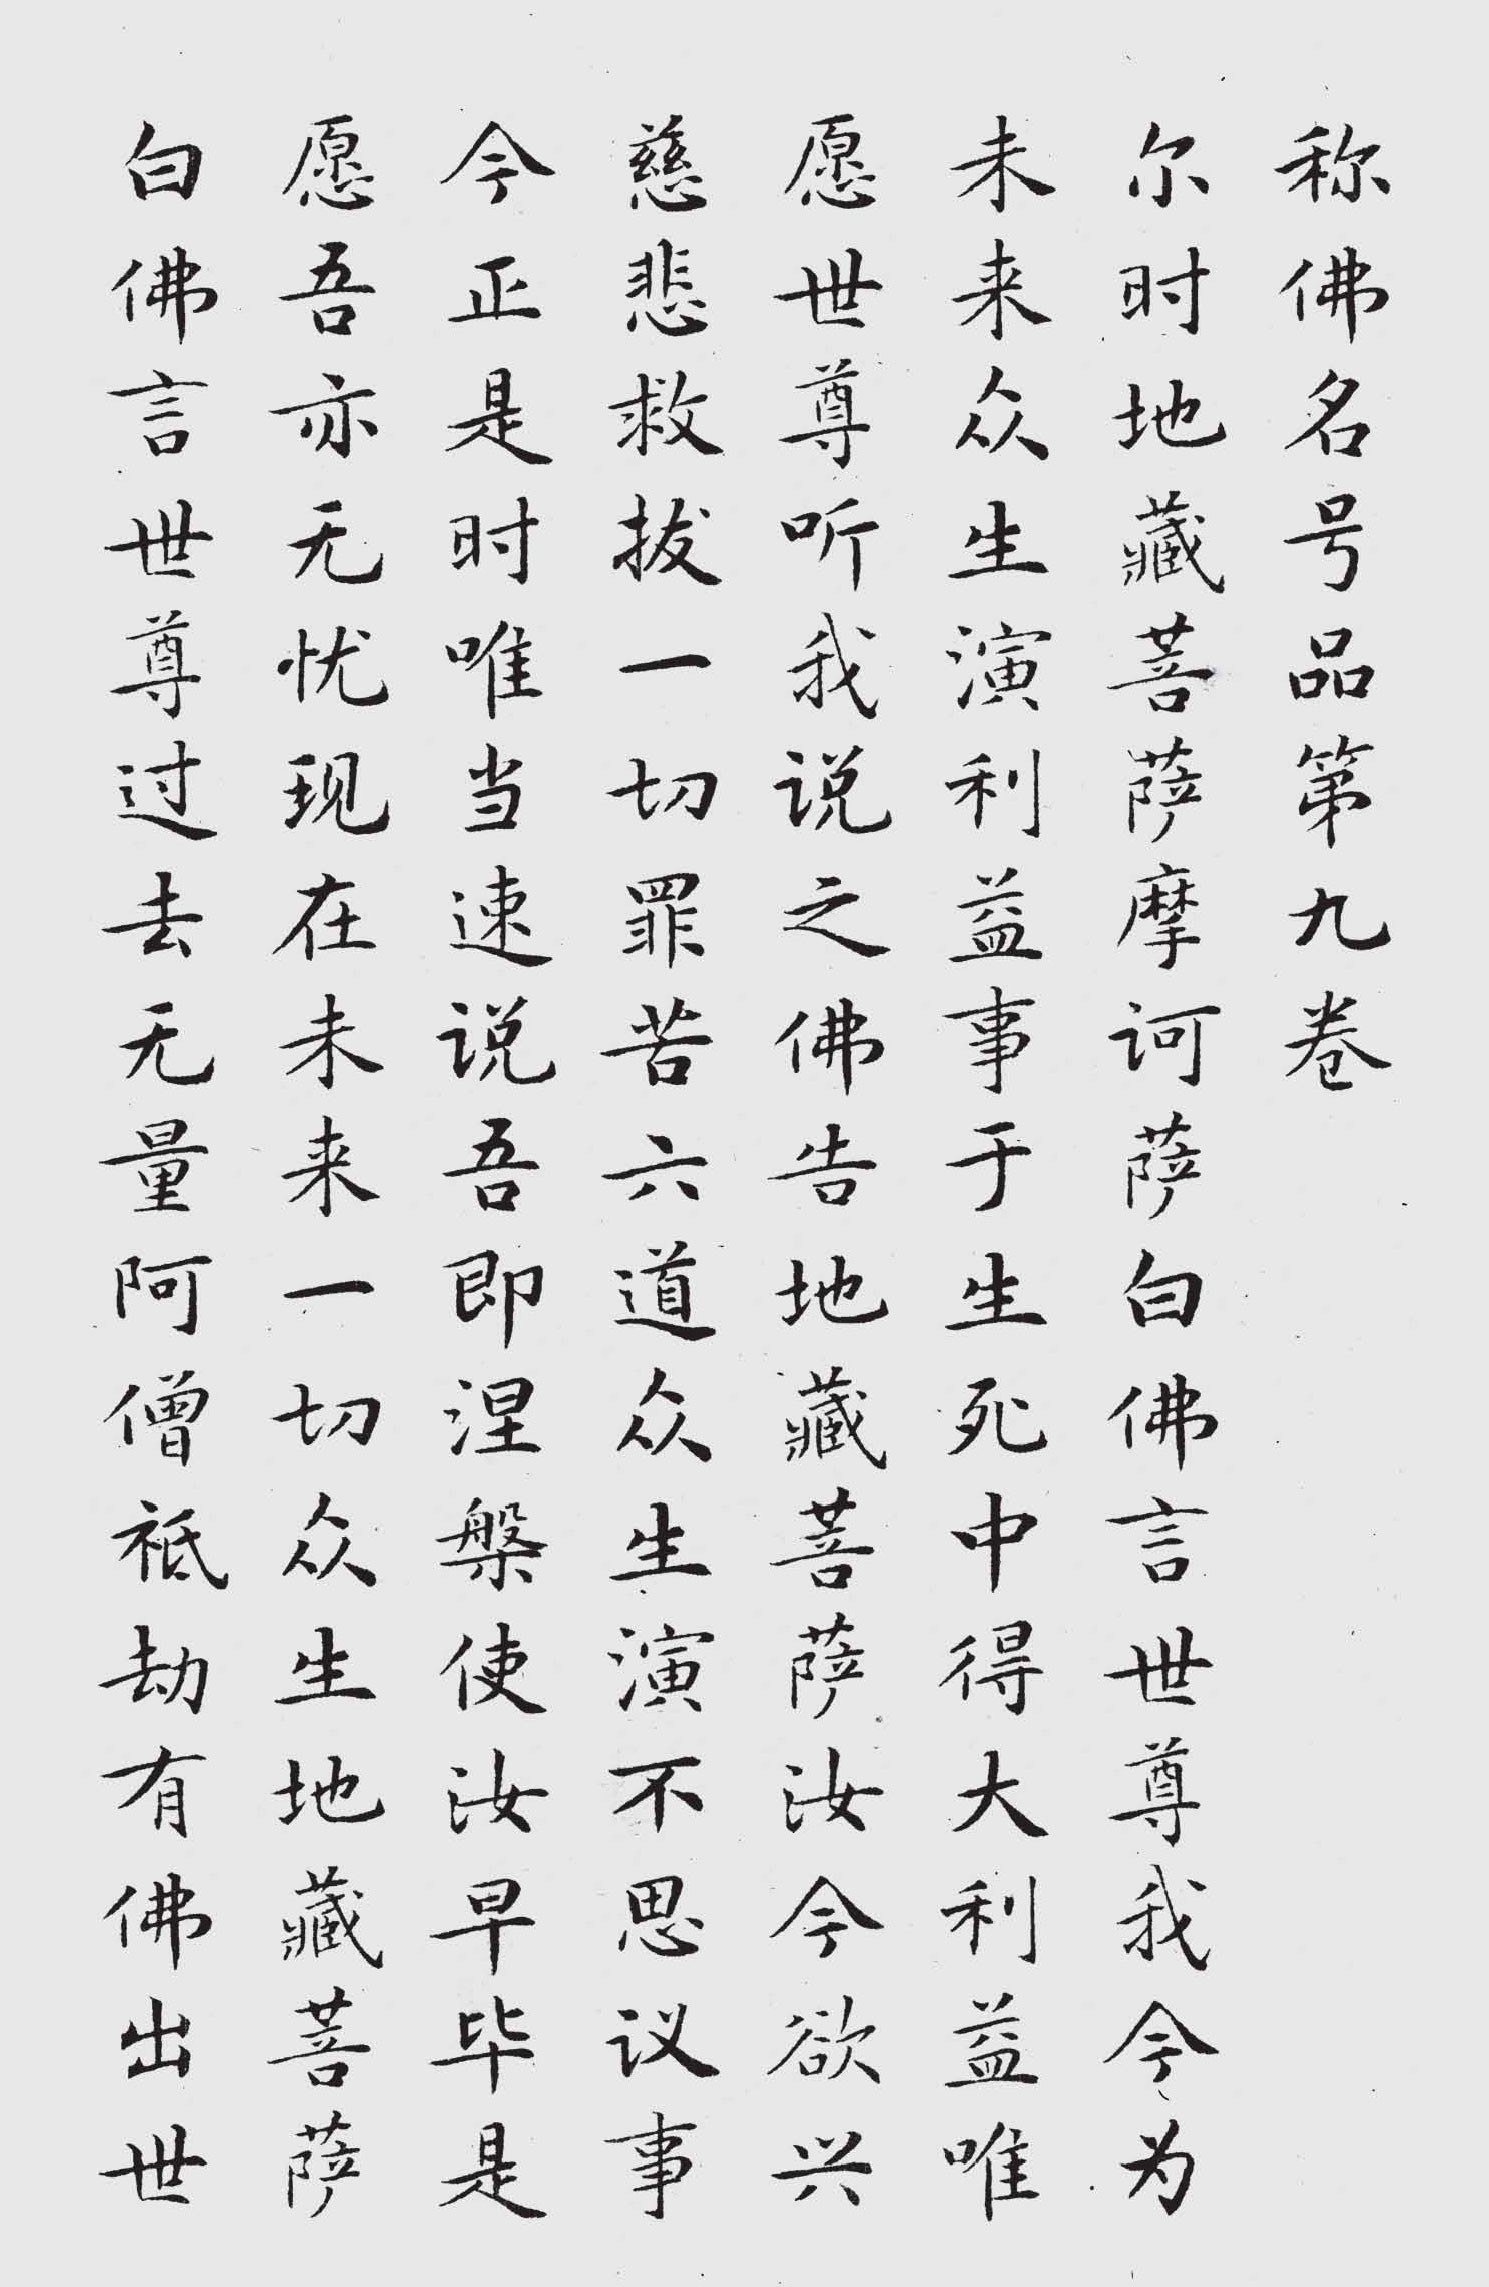 称佛名号品第九卷
尔时地藏菩萨摩诃萨白佛言世尊我今为
未来众生演利益事于生死中得大利益唯
愿世尊听我说之佛告地藏菩萨汝今欲兴
慈悲救拔一切罪苦六道众生演不思议事
今正是时唯当速说吾即涅槃使汝早毕是
愿吾亦无忧现在未来一切众生地藏菩萨
白佛言世尊过去无量阿僧祇劫有佛出世